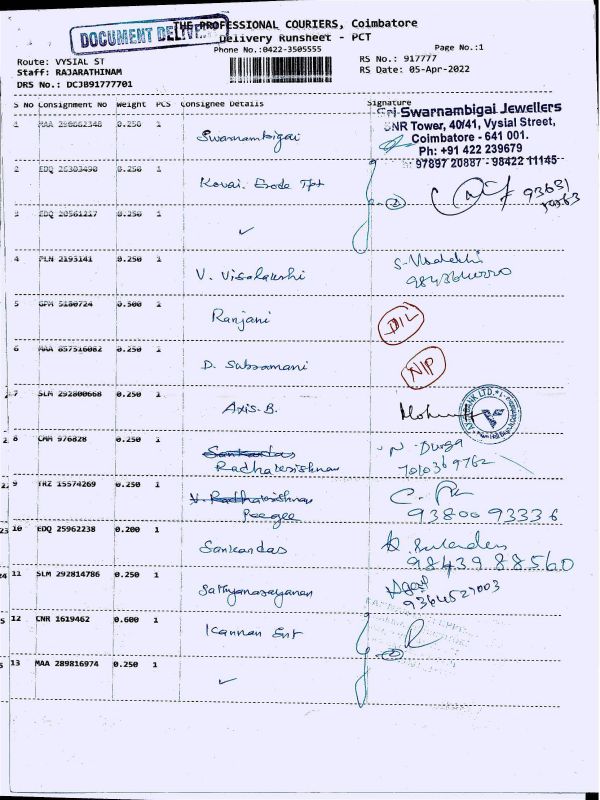 DOCUMENT DELIVERED
THE PROFESSIONAL COURIERS, Coimbatore
Delivery Runsheet - PCT
Phone No.:0422-3505555
Page No.:1
Route: VYSIAL ST
RS No.: 917777
Staff: RAJARATHINAM
RS Date: 05-Apr-2022
DRS No.: DCJB91777701
S No Consignment No Weight PCS Consignee Details Signature
Sri Swarnambigai Jewellers
SNR Tower, 40/41, Vysial Street,
Coimbatore - 641 001.
Ph: +91 422 239679
97897 20887 - 98422 11145
1 MAA 288662348 0.250 1 Swarnambigai
2 EDQ 26303490 0.250 1 Kovai. Erode Tpt
3 EDQ 20561217 0.250 1 ✓
4 PLN 2193141 0.250 1 V. Visalakshi
5 GPM 5180724 0.500 1 Ranjani DIL
6 MAA 857516082 0.250 1 D. Subramani NIP
7 SLM 292800668 0.250 1 Axis. B.
8 CMM 976828 0.250 1 Sankardas
Radhakrishnan
N. Durga
7010369762
9 TRZ 15574269 0.250 1 V. Radhakrishnan
Peegee
93800 93336
10 EDQ 25962238 0.200 1 Sankardas
98439 88560
11 SLM 292814786 0.250 1 Sathyanarayanan
9364527003
12 CNR 1619462 0.600 1 Kannan Ent
13 MAA 289816974 0.250 1 ✓